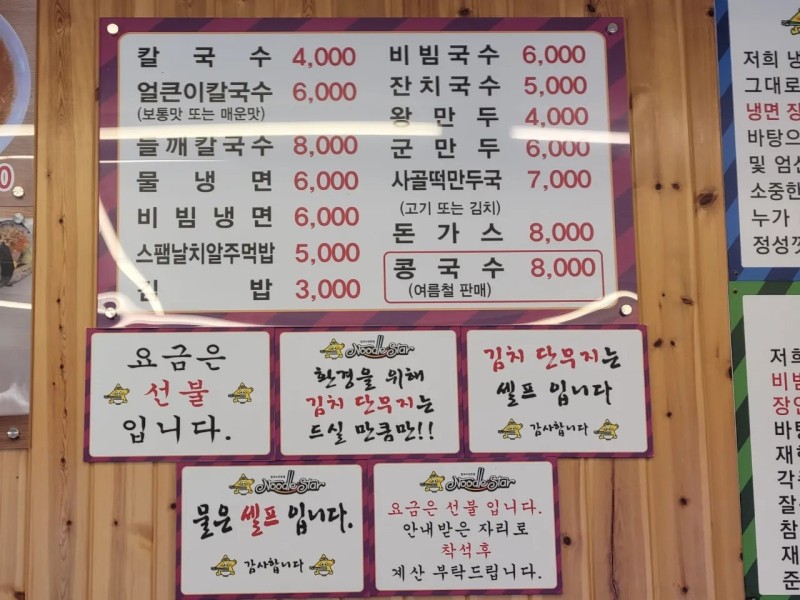 칼국수 4,000
얼큰이칼국수 6,000
(보통맛 또는 매운맛)
들깨칼국수 8,000
물냉면 6,000
비빔냉면 6,000
스팸날치알주먹밥 5,000
김밥 3,000
비빔국수 6,000
잔치국수 5,000
왕만두 4,000
군만두 6,000
사골떡만두국 7,000
(고기 또는 김치)
돈가스 8,000
콩국수 8,000
(여름철 판매)
요금은
선불
입니다.
Noodle Star
환경을 위해
김치 단무지는
드실 만큼만!!
김치 단무지는
셀프 입니다
감사합니다
Noodle Star
물은 셀프 입니다.
감사합니다
Noodle Star
요금은 선불 입니다.
안내받은 자리로
착석후
계산 부탁드립니다.
저희 냉
그대로
냉면 장
바탕으
및 엄선
소중한
누가
정성껏
저희
비빔
장인
바탕
재
각
잘
참
재
준
0